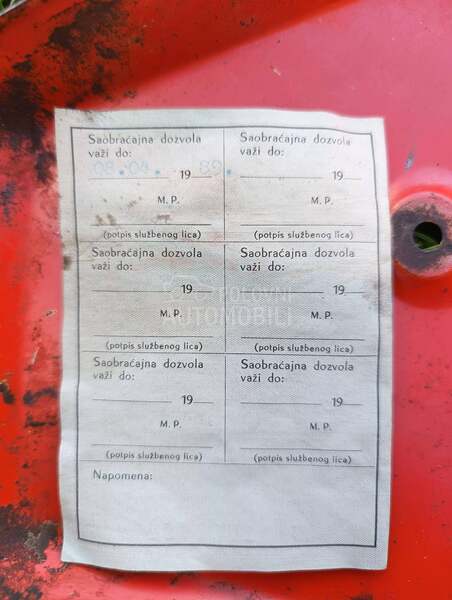 Saobraćajna dozvola
važi do:
08.04. 19 89.
M. P.
(potpis službenog lica)
Saobraćajna dozvola
važi do:
19
M. P.
(potpis službenog lica)
Saobraćajna dozvola
važi do:
19
M. P.
(potpis službenog lica)
Saobraćajna dozvola
važi do:
19
M. P.
(potpis službenog lica)
Saobraćajna dozvola
važi do:
19
M. P.
(potpis službenog lica)
Saobraćajna dozvola
važi do:
19
M. P.
(potpis službenog lica)
Napomena:
POLOVNI
AUTOMOBILI